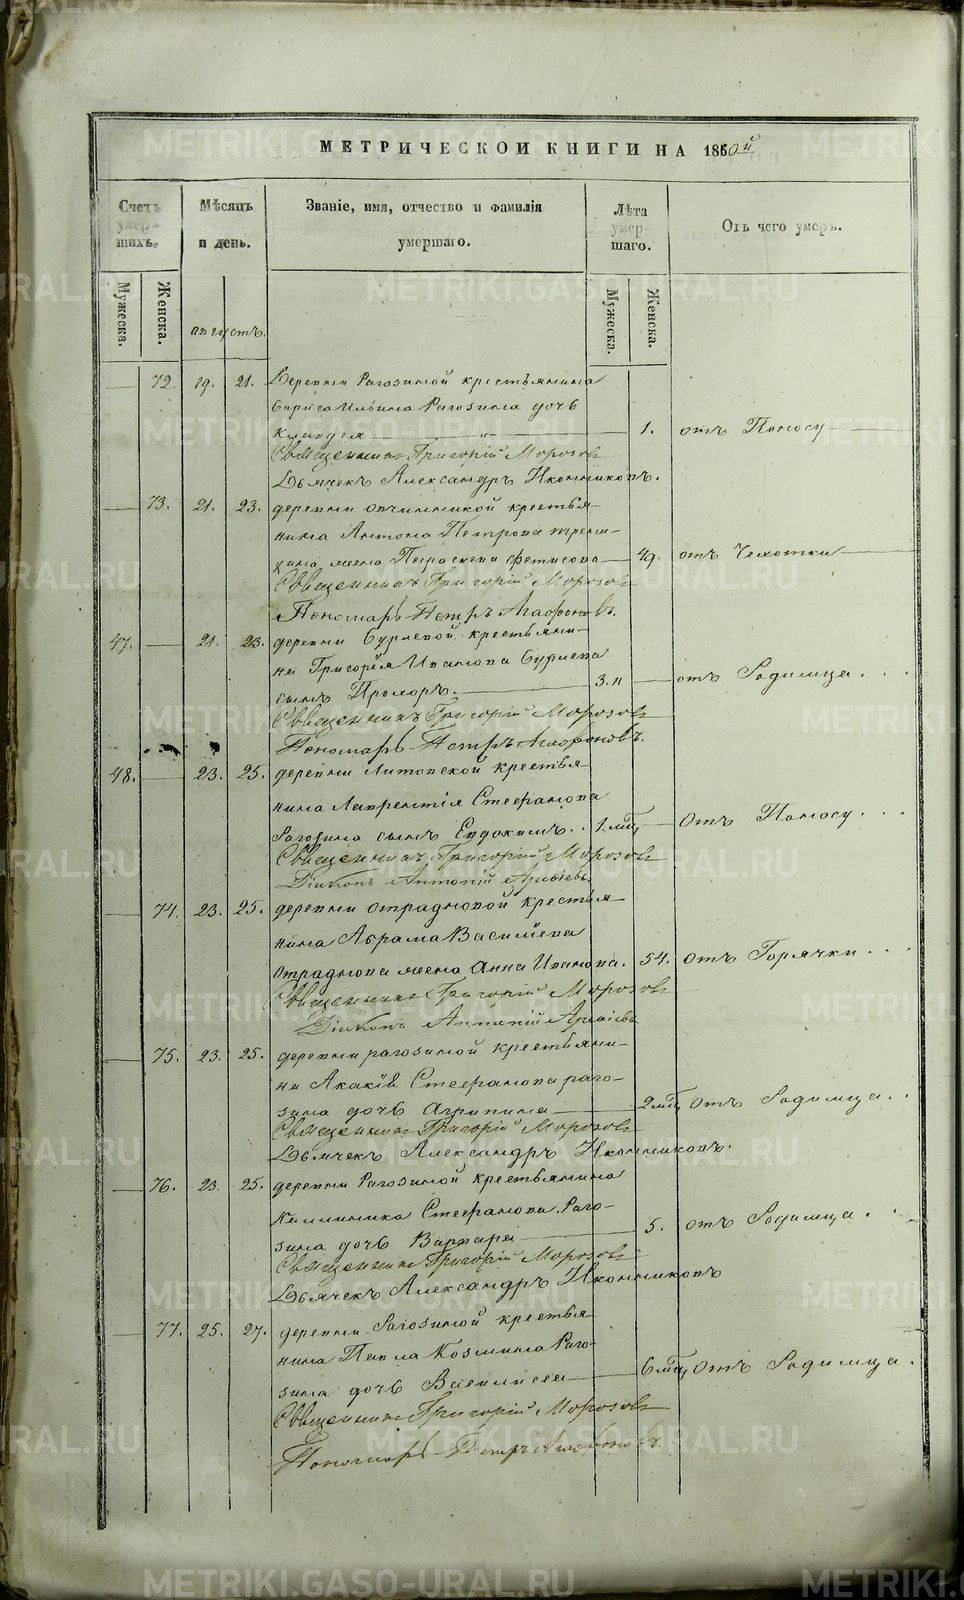 METRIKI.GASO-URAL.RU
МЕТРИЧЕСКОЙ КНИГИ НА 1860й
Счетъ умер- шихъ.
Мѣсяцъ и день.
Званіе, имя, отчество и фамилія умершаго.
Лѣта умер- шаго.
Отъ чего умеръ.
Мужеска. Женска.
августъ.
Мужеска. Женска.
— 72. 19. 21. Деревни Рагозиной крестьянина
Бориса Ильина Рагозина дочь
Клавдея — „ — 1. отъ Поносу —
Священникъ Григорій Морозовъ
Дьячекъ Александръ Иконниковъ.
— 73. 21. 23. деревни овчинникой крестья-
нина Антона Петрова
жена Параскева Фетисова — 49. отъ Чехотки —
Священникъ Григорій Морозовъ
Пономарь Петръ Агафоновъ.
47. — 21. 23. деревни Бурлевой крестьяни-
на Григорія Иванова Бурлева
сынъ Прохоръ. — 3.н — отъ Родимца . . .
Священникъ Григорій Морозовъ
Пономарь Петръ Агафоновъ.
48. — 23. 25. деревни Литовской крестья-
нина Лаврентія Стефанова
Рагозина сынъ Евдокимъ. . 1.мцъ — Отъ Поносу . . .
Священникъ Григорій Морозовъ
Діаконъ Антоній
— 74. 23. 25. деревни отрадновой крестья-
нина Абрама Василіева
Отраднова жена Анна Иванова. 54. отъ Горячки . . .
Священникъ Григорій Морозовъ
Діаконъ Антоній
— 75. 23. 25. деревни рагозиной крестьяни-
на Акакія Стефанова раго-
зина дочь Агрипина — 2мцъ отъ Родимца . .
Священникъ Григорій Морозовъ
Дьячекъ Александръ Иконниковъ.
— 76. 23. 25. деревни Рагозиной крестьянина
Каллиника Стефанова Раго-
зина дочь Варвара — 5. отъ Родимца . .
Священникъ Григорій Морозовъ
Дьячекъ Александръ Иконниковъ
— 77. 25. 27. деревни Рагозиной крестья-
нина Павла Козмина Раго-
зина дочь Василиса — 6мцъ отъ Родимца .
Священникъ Григорій Морозовъ
Пономарь Петръ Агафоновъ.
METRIKI.GASO-URAL.RU